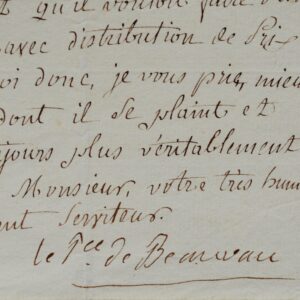 qu'il voudroit faire
avec distribution de Prix
oi donc, je vous prie, mieux
dont il se plaint et
ujours plus véritablement
Monsieur, votre très hum
ent Serviteur.
le Pce de Beauvau